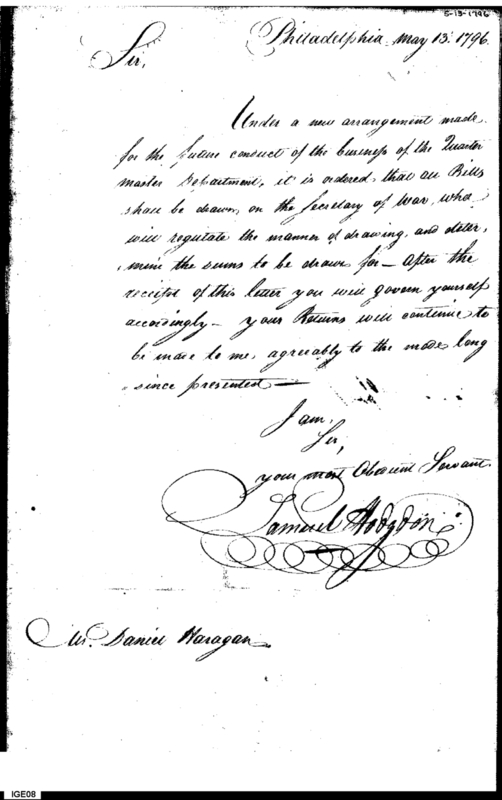 5-13-1796
Philadelphia May 13. 1796.
Sir,
Under a new arrangement made
for the future conduct of the business of the Quarter
master Department, it is ordered that all Bills
shall be drawn on the Secretary of War, who
will regulate the manner of drawing, and deter,
,mine the sums to be drawn for — After the
receipt of this letter you will govern yourself
accordingly — your Returns will continue to
be made to me, agreeably to the mode long
since presented —
I am,
Sir,
your most Obedient Servant
Samuel Hodgdon
Mr. Daniel Haragan
IGE08